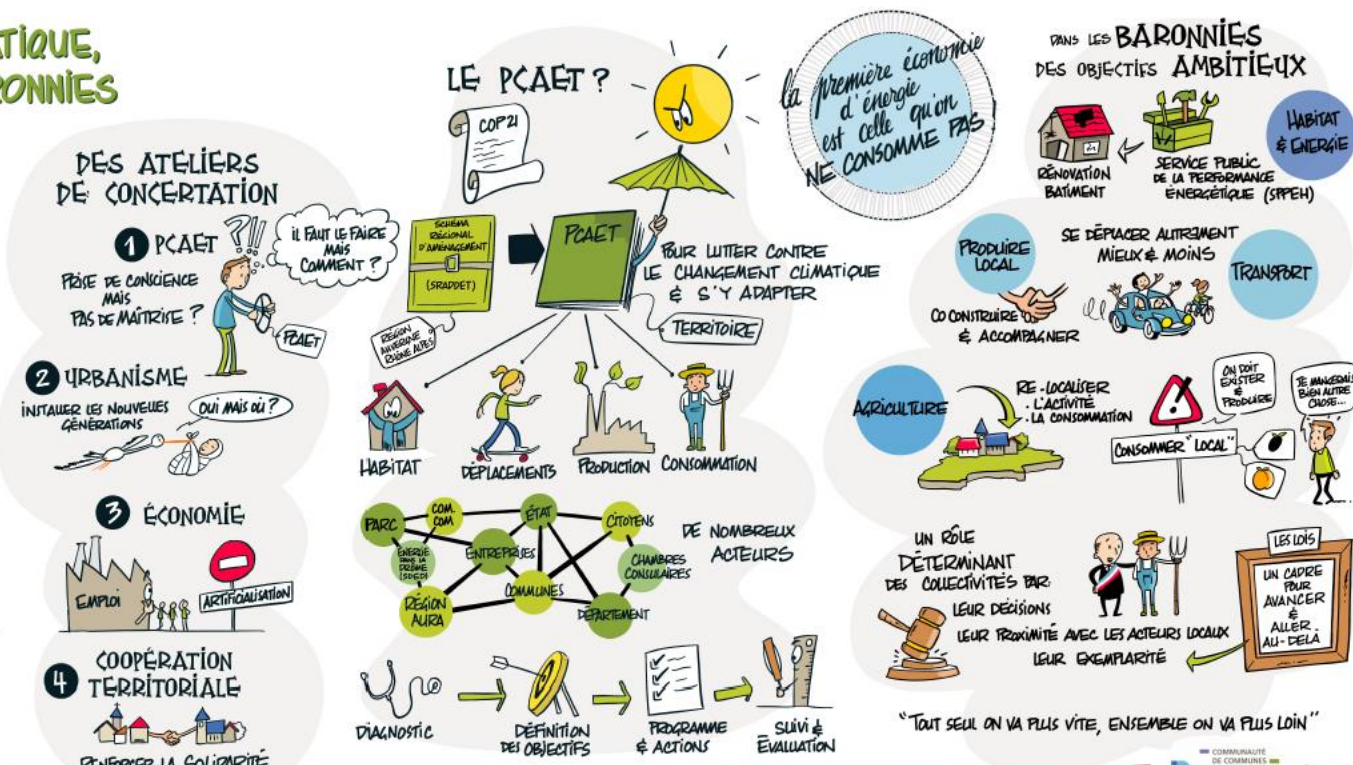 ATIQUE,
RONNIES
DES ATELIERS
DE CONCERTATION
1 PCAET
?!!!
IL FAUT LE FAIRE
MAIS
COMMENT ?
PRISE DE CONSCIENCE
MAIS
PAS DE MAÎTRISE ?
PCAET
2 URBANISME
INSTALLER LES NOUVELLES
GÉNÉRATIONS
OUI MAIS OÙ ?
3 ÉCONOMIE
EMPLOI
ARTIFICIALISATION
4 COOPÉRATION
TERRITORIALE
RENFORCER LA SOLIDARITÉ
LE PCAET ?
COP21
SCHÉMA
RÉGIONAL
D'AMÉNAGEMENT
(SRADDET)
RÉGION
AUVERGNE
RHÔNE ALPES
PCAET
POUR LUTTER CONTRE
LE CHANGEMENT CLIMATIQUE
& S'Y ADAPTER
TERRITOIRE
HABITAT
DÉPLACEMENTS
PRODUCTION
CONSOMMATION
PARC
COM.
COM
ÉTAT
CITOYENS
ÉNERGIE
DANS LA
DRÔME
(SDED)
ENTREPRISES
CHAMBRES
CONSULAIRES
RÉGION
AURA
COMMUNES
DÉPARTEMENT
DE NOMBREUX
ACTEURS
DIAGNOSTIC
DÉFINITION
DES OBJECTIFS
PROGRAMME
& ACTIONS
SUIVI &
ÉVALUATION
la première économie
d'énergie
est celle qu'on
NE CONSOMME PAS
DANS LES BARONNIES
DES OBJECTIFS AMBITIEUX
RÉNOVATION
BATIMENT
SERVICE PUBLIC
DE LA PERFORMANCE
ÉNERGÉTIQUE (SPPEH)
HABITAT
& ENERGIE
PRODUIRE
LOCAL
CO CONSTRUIRE
& ACCOMPAGNER
SE DÉPLACER AUTREMENT
MIEUX & MOINS
TRANSPORT
AGRICULTURE
RE-LOCALISER
. L'ACTIVITÉ
. LA CONSOMMATION
CONSOMMER "LOCAL"
ON DOIT
EXISTER
&
PRODUIRE
JE MANGERAIS
BIEN AUTRE
CHOSE...
UN RÔLE
DÉTERMINANT
DES COLLECTIVITÉS PAR:
LEUR DÉCISIONS
LEUR PROXIMITÉ AVEC LES ACTEURS LOCAUX
LEUR EXEMPLARITÉ
LES LOIS
UN CADRE
POUR
AVANCER
&
ALLER
AU-DELÀ
"TOUT SEUL ON VA PLUS VITE, ENSEMBLE ON VA PLUS LOIN"
COMMUNAUTÉ
DE COMMUNES